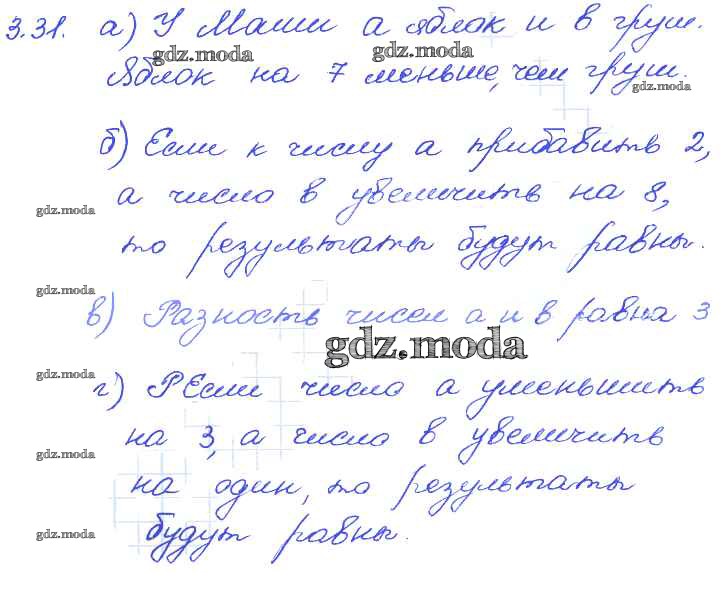 3.31. а) У Маши а яблок и в груш.
gdz.moda gdz.moda
Яблок на 7 меньше, чем груш.
gdz.moda
б) Если к числу а прибавить 2,
а число в увеличить на 8,
gdz.moda
то результаты будут равны.
gdz.moda
в) Разность чисел а и в равна 3
gdz.moda
gdz.moda
г) РЕсли число а уменьшить
на 3, а число в увеличить
gdz.moda
на один, то результаты
gdz.moda
будут равны.